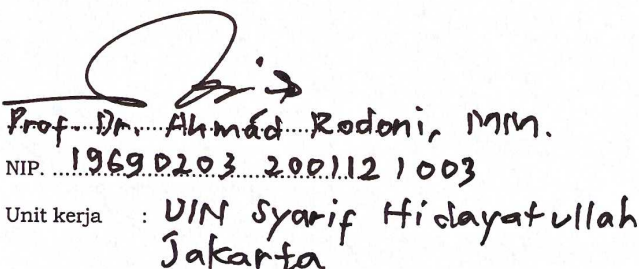 Prof. Dr. Ahmad Rodoni, MM.
NIP. 19690203 200112 1 003
Unit kerja : UIN Syarif Hidayatullah
Jakarta